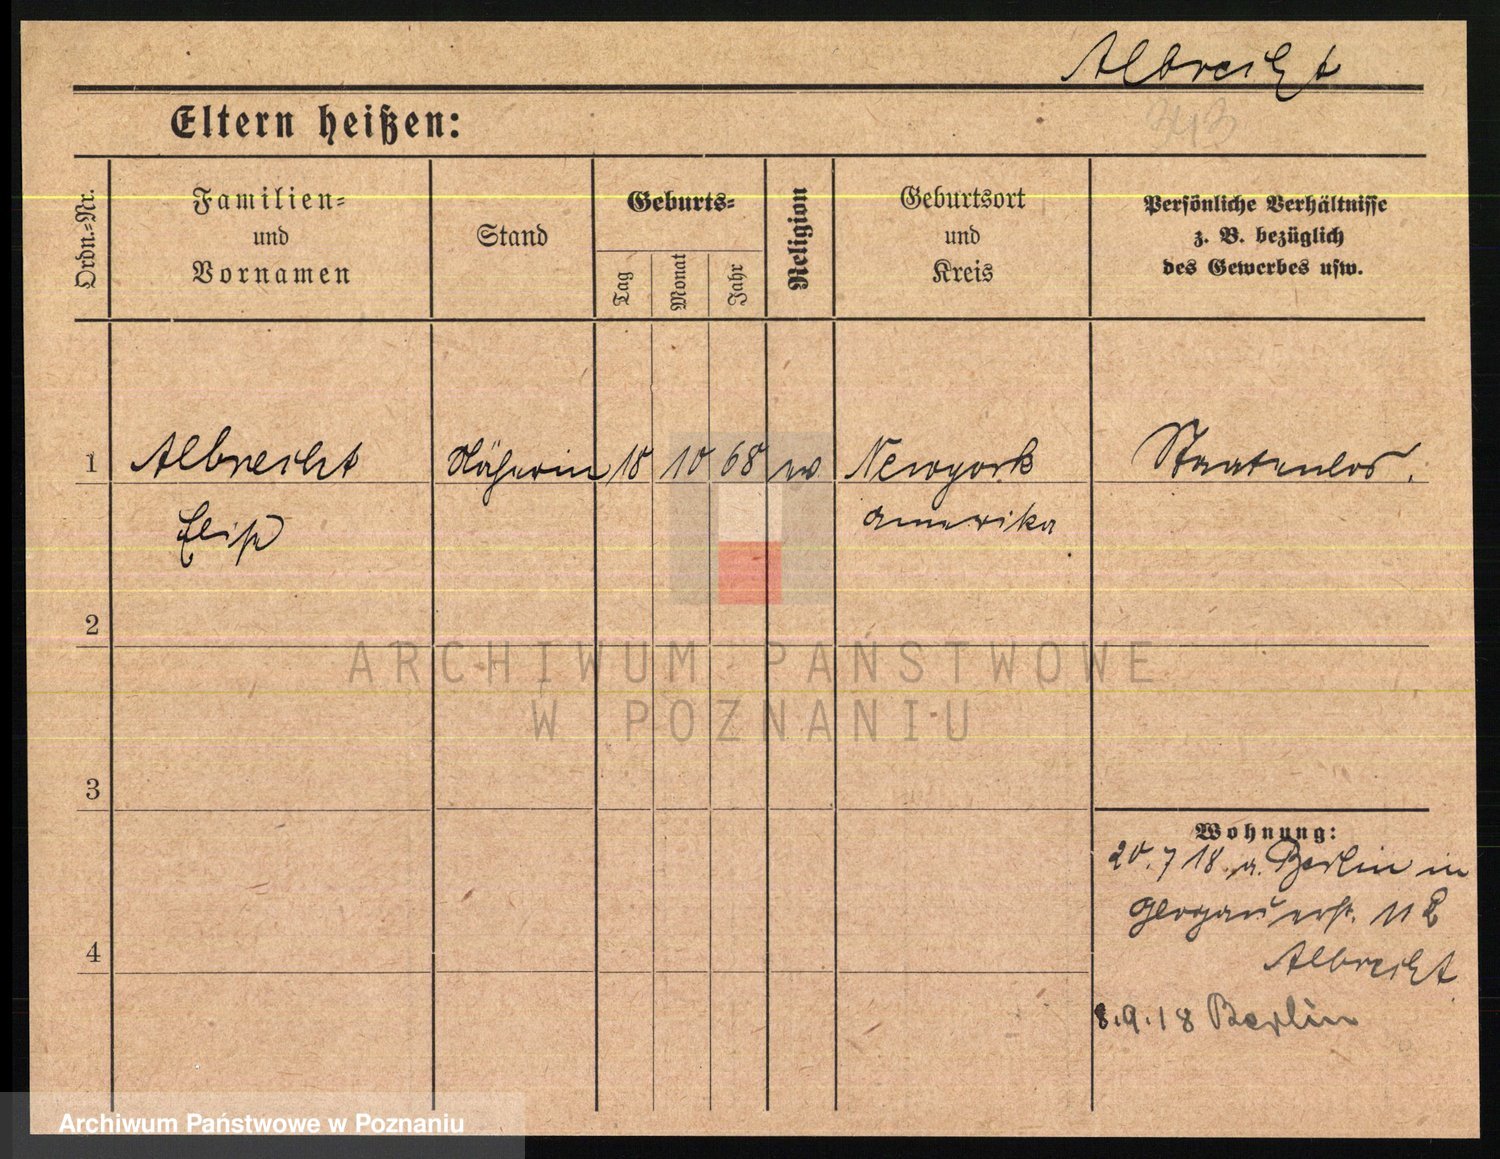 Albrecht
343
Eltern heißen:
Ordn.-Nr.
Familien-
und
Vornamen
Stand
Geburts-
Tag
Monat
Jahr
Religion
Geburtsort
und
Kreis
Persönliche Verhältnisse
z. B. bezüglich
des Gewerbes usw.
1 Albrecht Näherin 18 10 68 ev Newyork Staatenlos.
Elise Amerika
2
ARCHIWUM PAŃSTWOWE
W POZNANIU
3
Wohnung:
20.7 18. v. Berlin in
Glogauerst. 112
4
Albrecht
8.9.18 Berlin
Archiwum Państwowe w Poznaniu